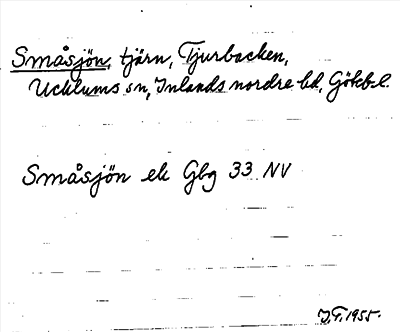 Småsjön, tjärn, Tjurbacken,
Ucklums sn, Inlands nordre hd, Götkb-l.
Småsjön ek Gbg 33 NV
J.F. 1955.